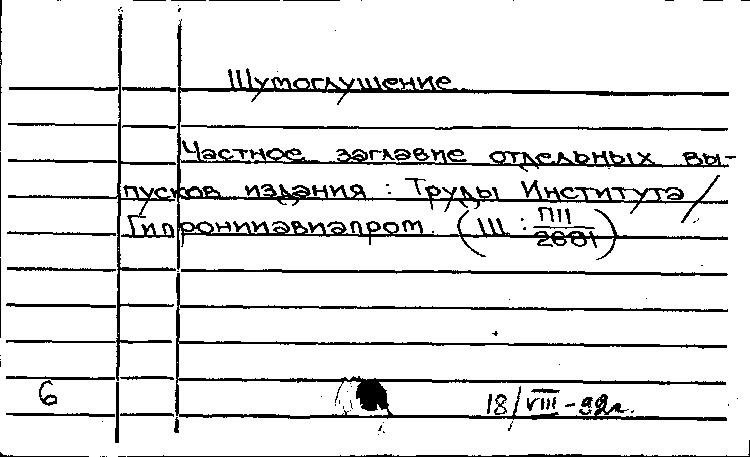 Шумоглушение
Частное заглавие отдельных вы-
пусков издания : Труды Института /
Гипронииавиапром. (Ш : П11
2681)
6
18/VIII-92г.